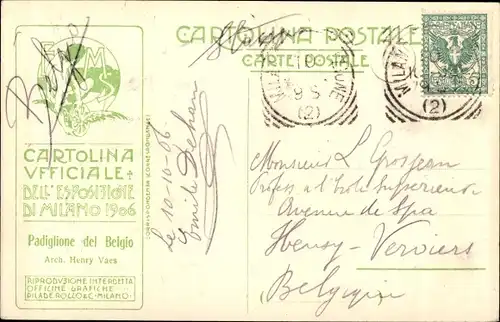 CARTOLINA POSTALE
CARTE POSTALE
E M
CARTOLINA
VFFICIALE
DELL'ESPOSIZIONE
DI MILANO 1906
Padiglione del Belgio
Arch. Henry Vaes
RIPRODVZIONE INTERDETTA
OFFICINE GRAFICHE
PILADE ROCCO & C. MILANO
Le 10-10-06
Emile
9 S
(2)
(2)
Monsieur L Grosjean
Profess à l'Ecole Supérieure
Avenue de Spa
Heusy-Verviers
Belgique